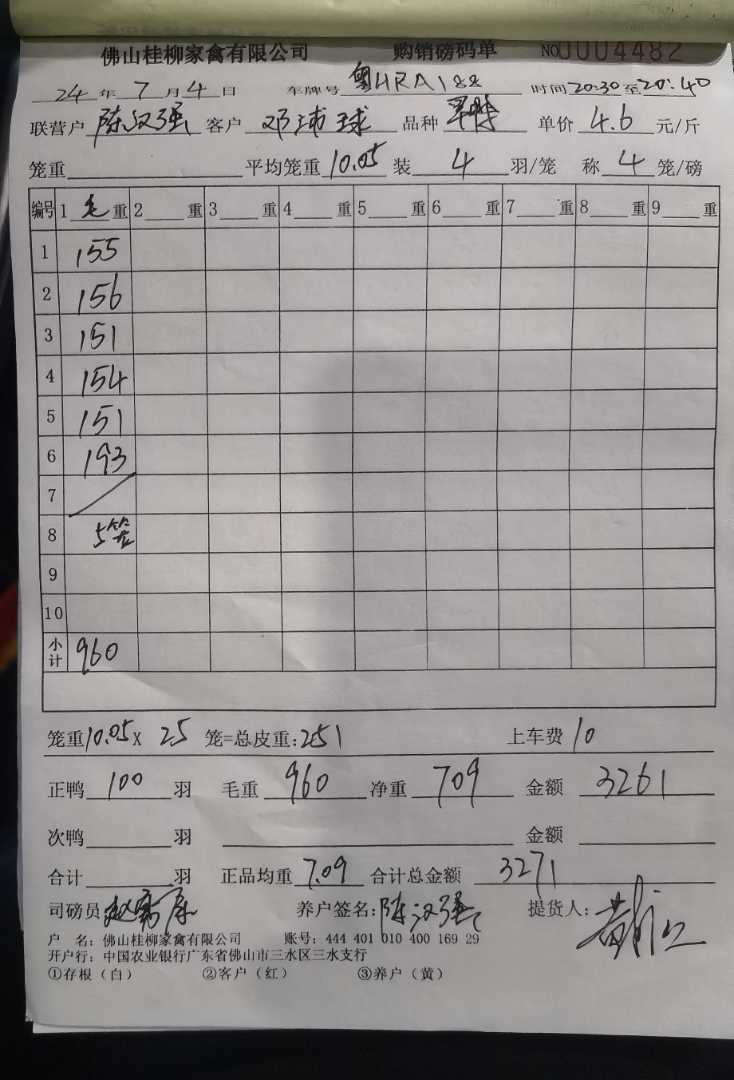 佛山桂柳家禽有限公司 购销磅码单 NO0004482
24年7月4日 车牌号粤HRA188 时间20:30至20:40
联营户陈汉强 客户邓沛球 品种 单价4.6元/斤
笼重 平均笼重10.05 装4羽/笼 称4笼/磅
编号 1毛重 2重 3重 4重 5重 6重 7重 8重 9重
1 155
2 156
3 151
4 154
5 151
6 193
7
8 5笼
9
10
小计 960
笼重10.05X25笼=总皮重:251 上车费10
正鸭100羽 毛重960 净重709 金额3261
次鸭羽 金额
合计羽 正品均重7.09 合计总金额3271
司磅员 养户签名:陈汉强 提货人:
户 名: 佛山桂柳家禽有限公司 账号: 444 401 010 400 169 29
开户行: 中国农业银行广东省佛山市三水区三水支行
①存根(白) ②客户(红) ③养户(黄)